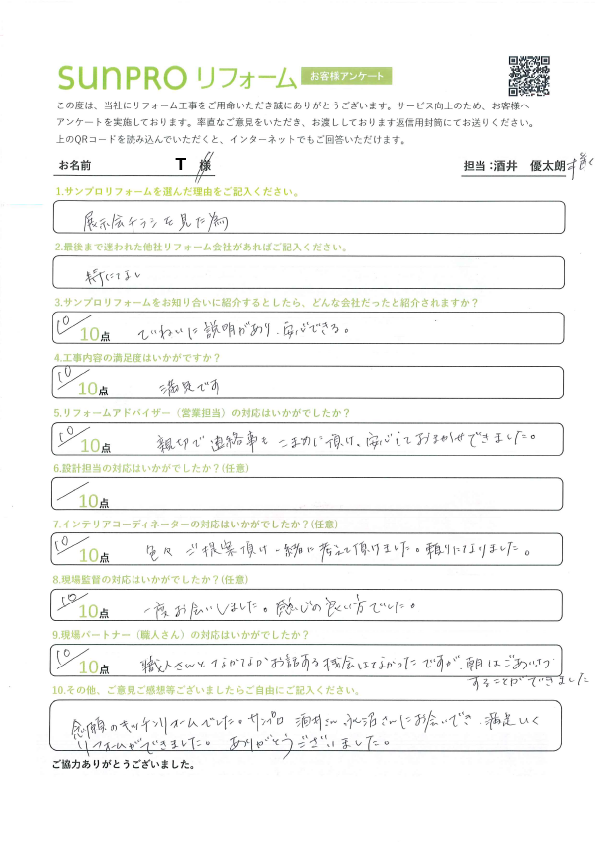 SUNPRO リフォーム お客様アンケート
この度は、当社にリフォーム工事をご用命いただき誠にありがとうございます。サービス向上のため、お客様へ
アンケートを実施しております。率直なご意見をいただき、お渡ししております返信用封筒にてお送りください。
上のQRコードを読み込んでいただくと、インターネットでもご回答いただけます。
お名前 T 様 担当：酒井 優太朗 様
1.サンプロリフォームを選んだ理由をご記入ください。
展示会チラシを見た為
2.最後まで迷われた他社リフォーム会社があればご記入ください。
特になし
3.サンプロリフォームをお知り合いに紹介するとしたら、どんな会社だったと紹介されますか？
10/10点 ていねいに説明があり、安心できる。
4.工事内容の満足度はいかがですか？
10/10点 満足です
5.リフォームアドバイザー（営業担当）の対応はいかがでしたか？
10/10点 親切で連絡事もこまめに頂け、安心しておまかせできました。
6.設計担当の対応はいかがでしたか？(任意)
/10点
7.インテリアコーディネーターの対応はいかがでしたか？(任意)
10/10点 色々ご提案頂け一緒に考えて頂けました。頼りになりました。
8.現場監督の対応はいかがでしたか？(任意)
10/10点 一度お会いしました。感じの良い方でした。
9.現場パートナー（職人さん）の対応はいかがでしたか？
10/10点 職人さんと、なかなかお話する機会はなかったですが、朝はごあいさつ
することができました
10.その他、ご意見ご感想等ございましたらご自由にご記入ください。
念願のキッチンリフォームでした。サンプロ 酒井さん、永沼さんにお会いでき、満足いく
リフォームができました。ありがとうございました。
ご協力ありがとうございました。